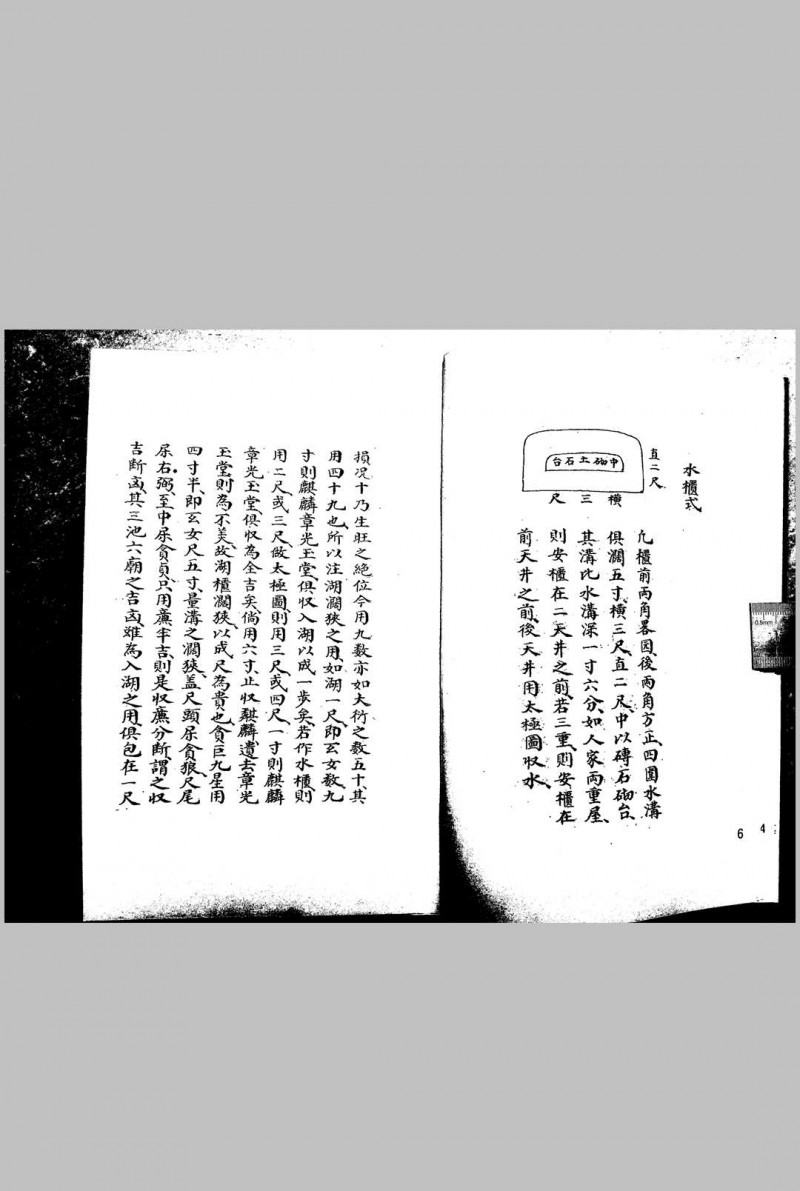 水櫃式
直二尺
中砌土石台
橫三尺
凡櫃前兩角畧圓後兩角方正四圍水溝
俱濶五寸橫三尺直二尺中以磚石砌台
其溝比水溝深一寸六分如人家兩重屋
則安櫃在二天井之前若三重則安櫃在
前天井之前後天井用太極圖収水
6
4
損况十乃生旺之絕位今用九数亦如大衍之数五十其
用四十九也所以注湖濶狹之用如湖一尺即玄女数九
寸則麒麟章光玉堂俱収入湖以成一步矣若作水櫃則
用二尺或三尺做太極圖則用三尺或四尺一寸則麒麟
章光玉堂俱収為全吉矣倘用六寸止収麒麟遺去章光
玉堂則為不美故湖櫃濶狹以成尺為貴也貪巨九星用
四寸半即玄女尺五寸量溝之濶狹盖尺頭屎貪狼尺尾
屎右弼至中屎貪貞只用廉牢吉則是収廉分断謂之収
吉断凶其三池六廟之吉凶雖為入湖之用俱包在一尺
0.5mm